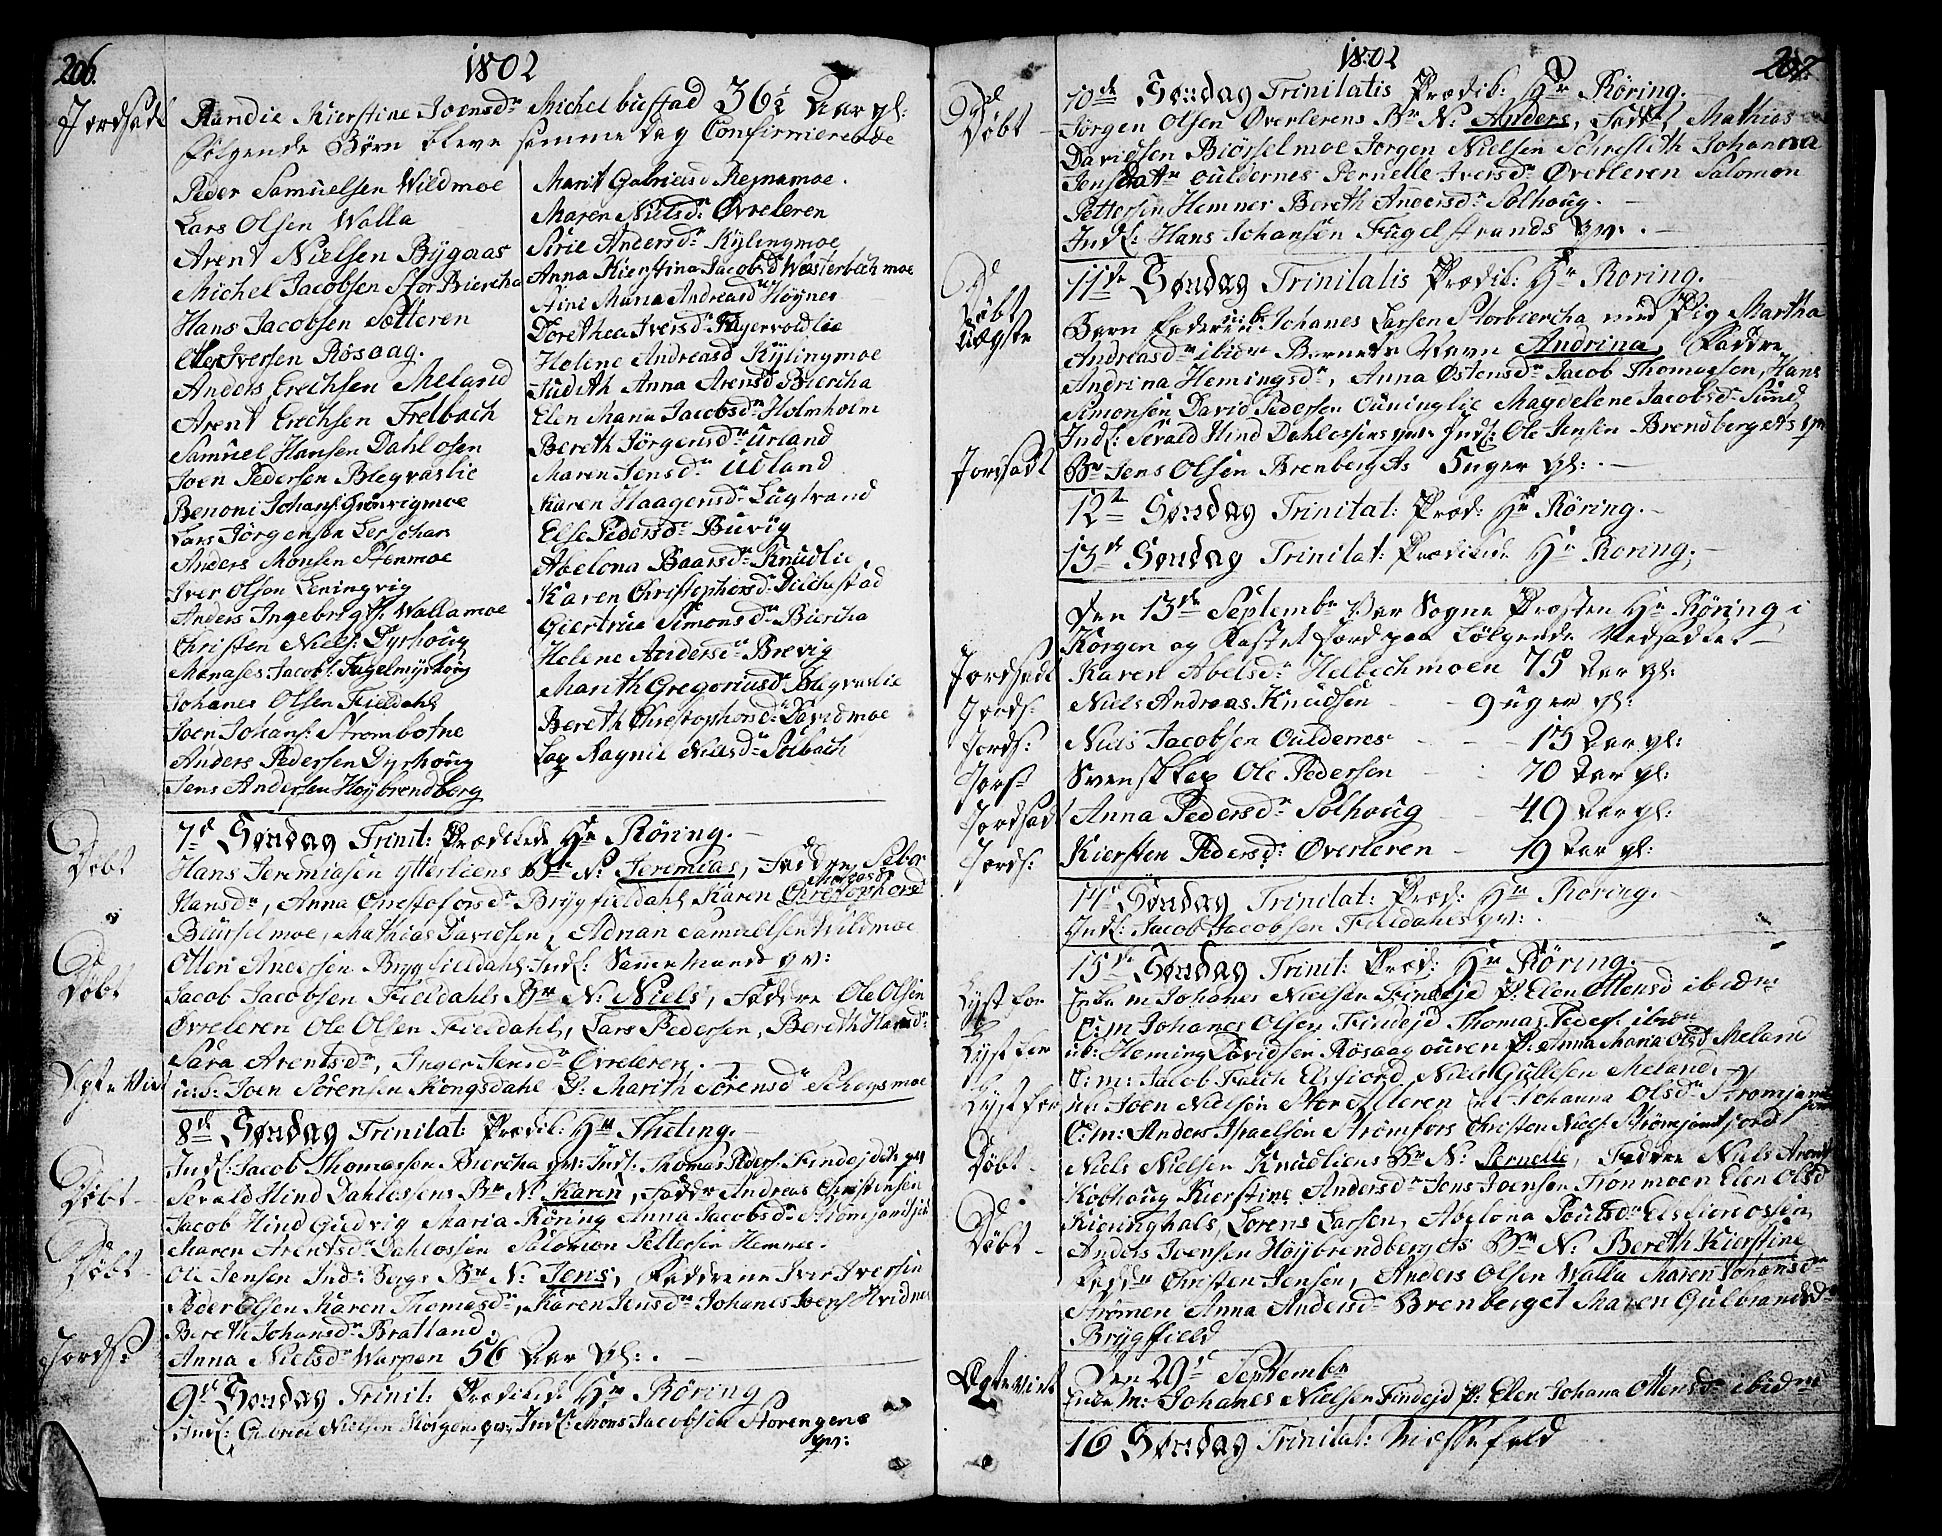 206.
1802
Jordsadt
Randie Kierstine Joensdr Michelbustad 36½ Aar gl:
følgende Børn bleve samme Dag Confirmerede
Peder Samuelsen Wildmoe
Lars Olsen Walla
Arent Nielsen Bÿgaas
Michel Jacobsen StorBiercha
Hans Jacobsen Sætteren
Iversen Røsaag.
Anders Erichsen Meland
Arent Erichsen Frelbach
Samuel Hansen Dahlosen
Joen Pedersen Blegvaslie
Benoni Johans: Grønvigmoe
Lars Jørgensen Lerschars
Anders Monsen Stenmoe
Iver Olsen Leningvig
Anders Ingebrigts: Wallamoe
Christen Niels: Dyrhoug
Manases Jacobs: Fugelmÿrhoug
Johanes Olsen Fieldahl
Joen Johans: Strømbotne
Anders Pedersen Dyrhoug
Jens Andersen Høÿbrendberg
Marit Gabrielsd Rejnemoe.
Maren Nielsdr Øvreleren
Sirie Andersdr Kÿlingmoe
Anna Kierstina Jacobsd Westerbechmoe
Aine Maria Andreasd Høÿnes
Dorethea Iversdr Fagervoldlie
Helene Andreasd Kÿlingmoe
Judith Anna Arensd Biercha
Elen Maria Jacobsdr Holmholm
Bereth Jørgensdr Urland
Maren Jensdr Udland
Karen Haagensdr Lugtrand
Else Pedersdr Buvig
Abelona Baarsdr Knudlie
Karen Christophersd Duchestad
Giertrue Simonsdr Biercha
Helene Andersdr Brevig
Marith Gregoriusdr Blegvaslie
Bereth Christophersd: Davidmoe
Lap Ragnie Nielsdr Solbach
Døbt
7de Søndag Trinit: Prædikede Hr Röring.
Hans Jeremiasen Ytterliens Bn N: Jeremias, Faddre
Hansdr, Anna Christofersdr Brÿgfieldahl Karen Christophersd
Biurselmoe, Mathias Davidsen, Adrian Samuelsen Wildmoe
Otter Andersen Brygfieldahl. Indl: Samemands qv:
Døbt
Jacob Jacobsen Fieldahls Bn N: Niels, Faddre Ole Olsen
Øvreleren Ole Olsen Fieldahl, Lars Pedersen, Bereth Hansdr
Sara Arentsdr, Inger Jensdr Øvreleren.
Ægte Viet
u:k: Joen Sørensen Kongsdahl P: Marith Sørensdr Schogsmoe
8de Søndag Trinitat: Prædik: Hr Theting.
Indl: Jacob Thomassen Biercha qv: Indl: Thomas Peders: Findejdets qv
Døbt
Sevald Hind Dahlossens Bn N: Karen, Faddr Andreas Christensen
Jacob Hind Gudvig Maria Röring Anna Jacobsdr
Maren Arentsdr Dahlossen Salomon Pettersen Hemnes.
Døbt
Ole Jensen Bn N: Jens, Faddrene Iver Iversen
Peder Olsen Karen Thomasdr, Karen Jensdr Johanes Joens Hvidnes
Bereth Johansdr Bratland.
Jords:
Anna Nielsdr Warpen 56 Aar gl:
9de Søndag Trinit: Prædiked: Hr Röring
Indl: Gabriel Nielsen Storgens qv: Indl: Mons Jacobsen Storengens
qv:
1802
207.
Døbt
10de Søndag Trinitatis Prædik: Hr Röring.
Jörgen Olsen Øverlerens Bn N: Anders, Faddr Mathias
Davidsen Biörselmoe Jörgen Nielsen Schresleth Johanna
Jensdattr Ouldernes Pernelle Iversdr Øverleren Salomon
Pettersen Hemner Bereth Andersdr Solhoug.
Indl: Hans Johansen Fugelstrands qv:
Døbt
Uægte
11te Søndag Trinitatis Prædik: Hr Roring.
Barn Faderen Johanes Larsen Storbiercha med Pig Martha
Andreasdr ibidm Barnets Navn Andrina, Faddre
Andrina Hemingsdr, Anna Østensdr Jacob Thomassen, Hans
Simonsen David Pedersen Ouninglie Magdelene Jacobsdr Sund
Indl: Sevald Hind Dahlossens qv: Indl: Ole Jensen Brendbergets qv
Jordsadt
Bn Jens Olsen Brenbergets 5 uger gl:
12te Søndag Trinitat: Præd: Hr Röring.
13de Søndag Trinitat: Prædiked: Hr Roring.
Den 13de Septembr var Sogne Præsten Hr Röring i
Korgen og Kastet Jord paa følgende Nedsadte
Jordsadt
Karen Abelsdr Helbechmoen 75 Aar gl:
Jords:
Niels Andreas Knudsen 9 uger gl:
Jords:
Niels Jacobsen Ouldenes 13 Aar gl:
Jords:
Svensk Lap Ole Pedersen 70 Aar gl:
Jordsadt
Anna Pedersdr Solhoug 49 Aar gl:
Jords:
Kiersten Pedersdr Øverleren 19 Aar gl:
14de Søndag Trinitat: Præd: Hr Roring.
Indl: Jacob Jacobsen Fieldahls qv:
15de Søndag Trinit: Præd: Hr Röring.
Lyst for
Enkem Johanes Nielsen Findejd P: Elen Ottersd ibidm
C:m Johanes Olsen Findejd Thomas Peders: ibidm
Lyst for
uk: Heming Davidsen Røsaagouren P: Anna Maria Olsd Meland
C:m: Jacob Falch Elsfiord, Niels Gullesen Meland.
Lyst for
uk: Joen Nielsen Storseleren Johanna Olsdr
C:m: Anders Israelsen Strømfors Christen Niels: Strømsjontfjord
Døbt
Niels Nielsen Knudliens Bn N: Pernelle, Faddre Niels Arents
Kobhoug Kierstine Andersdr Jens Joensen Tronmoen Elen Olsd
Kieringhals, Lorens Larsen, Abelona Poulsdr Elsfiordosen
Døbt
Anders Joensen Høÿbrendbergets Bn N: Bereth Kierstine
Faddr Christen Jensen, Anders Olsen Walla Maren Johansdr
Strømen Anna Andersdr Brenberget Maren Gulbrandsdr
Brÿgfield
Den 29de Septembr
Ægteviet
Enkem: Johanes Nielsen Findejd P: Elen Johana Ottersdr ibidm
16 Søndag Trinitat: Messefald